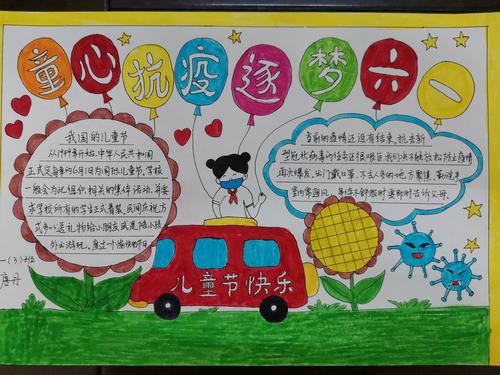 童心抗疫逐梦六一
我国的儿童节
从1949年开始,中华人民共和国
正式定每年的6月1日为国际儿童节,学校
一般会为此组织相关的集体活动,并要
求学校所有的学生正式着装,民间庆祝方
式多以送礼物给小朋友或是陪小孩
外出游玩,度过一个愉快的节日。
当前的疫情还没有结束,抗击新
型冠状病毒的任务还很艰巨,我们决不能放松,防止疫情
再次爆发,出门戴口罩,不去人多的地方聚集,勤洗手
室内常通风,身体不舒服时要即时告诉父母。
儿童节快乐
一(3)班
唐丹